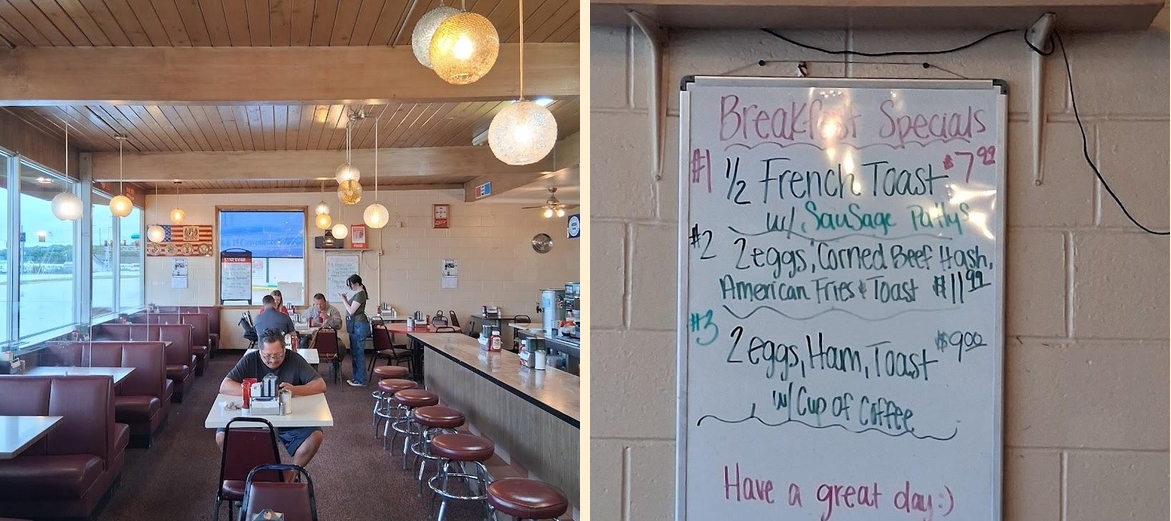 Breakfast Specials
#1 1/2 French Toast $7.99
w/ SauSage Patty's
#2 2eggs, Corned Beef Hash,
American Fries & Toast $11.99
#3 2 eggs, Ham, Toast $9.00
w/ Cup of Coffee
Have a great day :)